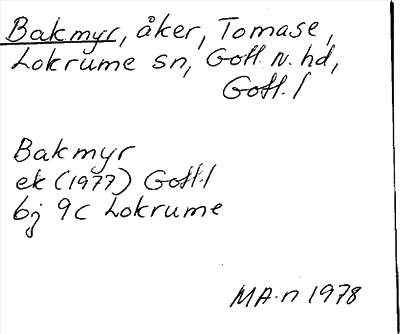 Bakmyr, åker, Tomase,
Lokrume sn, Gotl. N. hd,
Gotl. l
Bakmyr
ek (1977) Gotl. l
bj 9c Lokrume
MA-n 1978